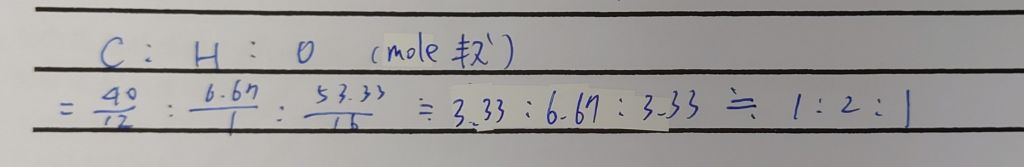 C : H : O (mole 非)
= 40/12 : 6.67/1 : 53.33/16 ≒ 3.33 : 6.67 : 3.33 ≒ 1 : 2 : 1